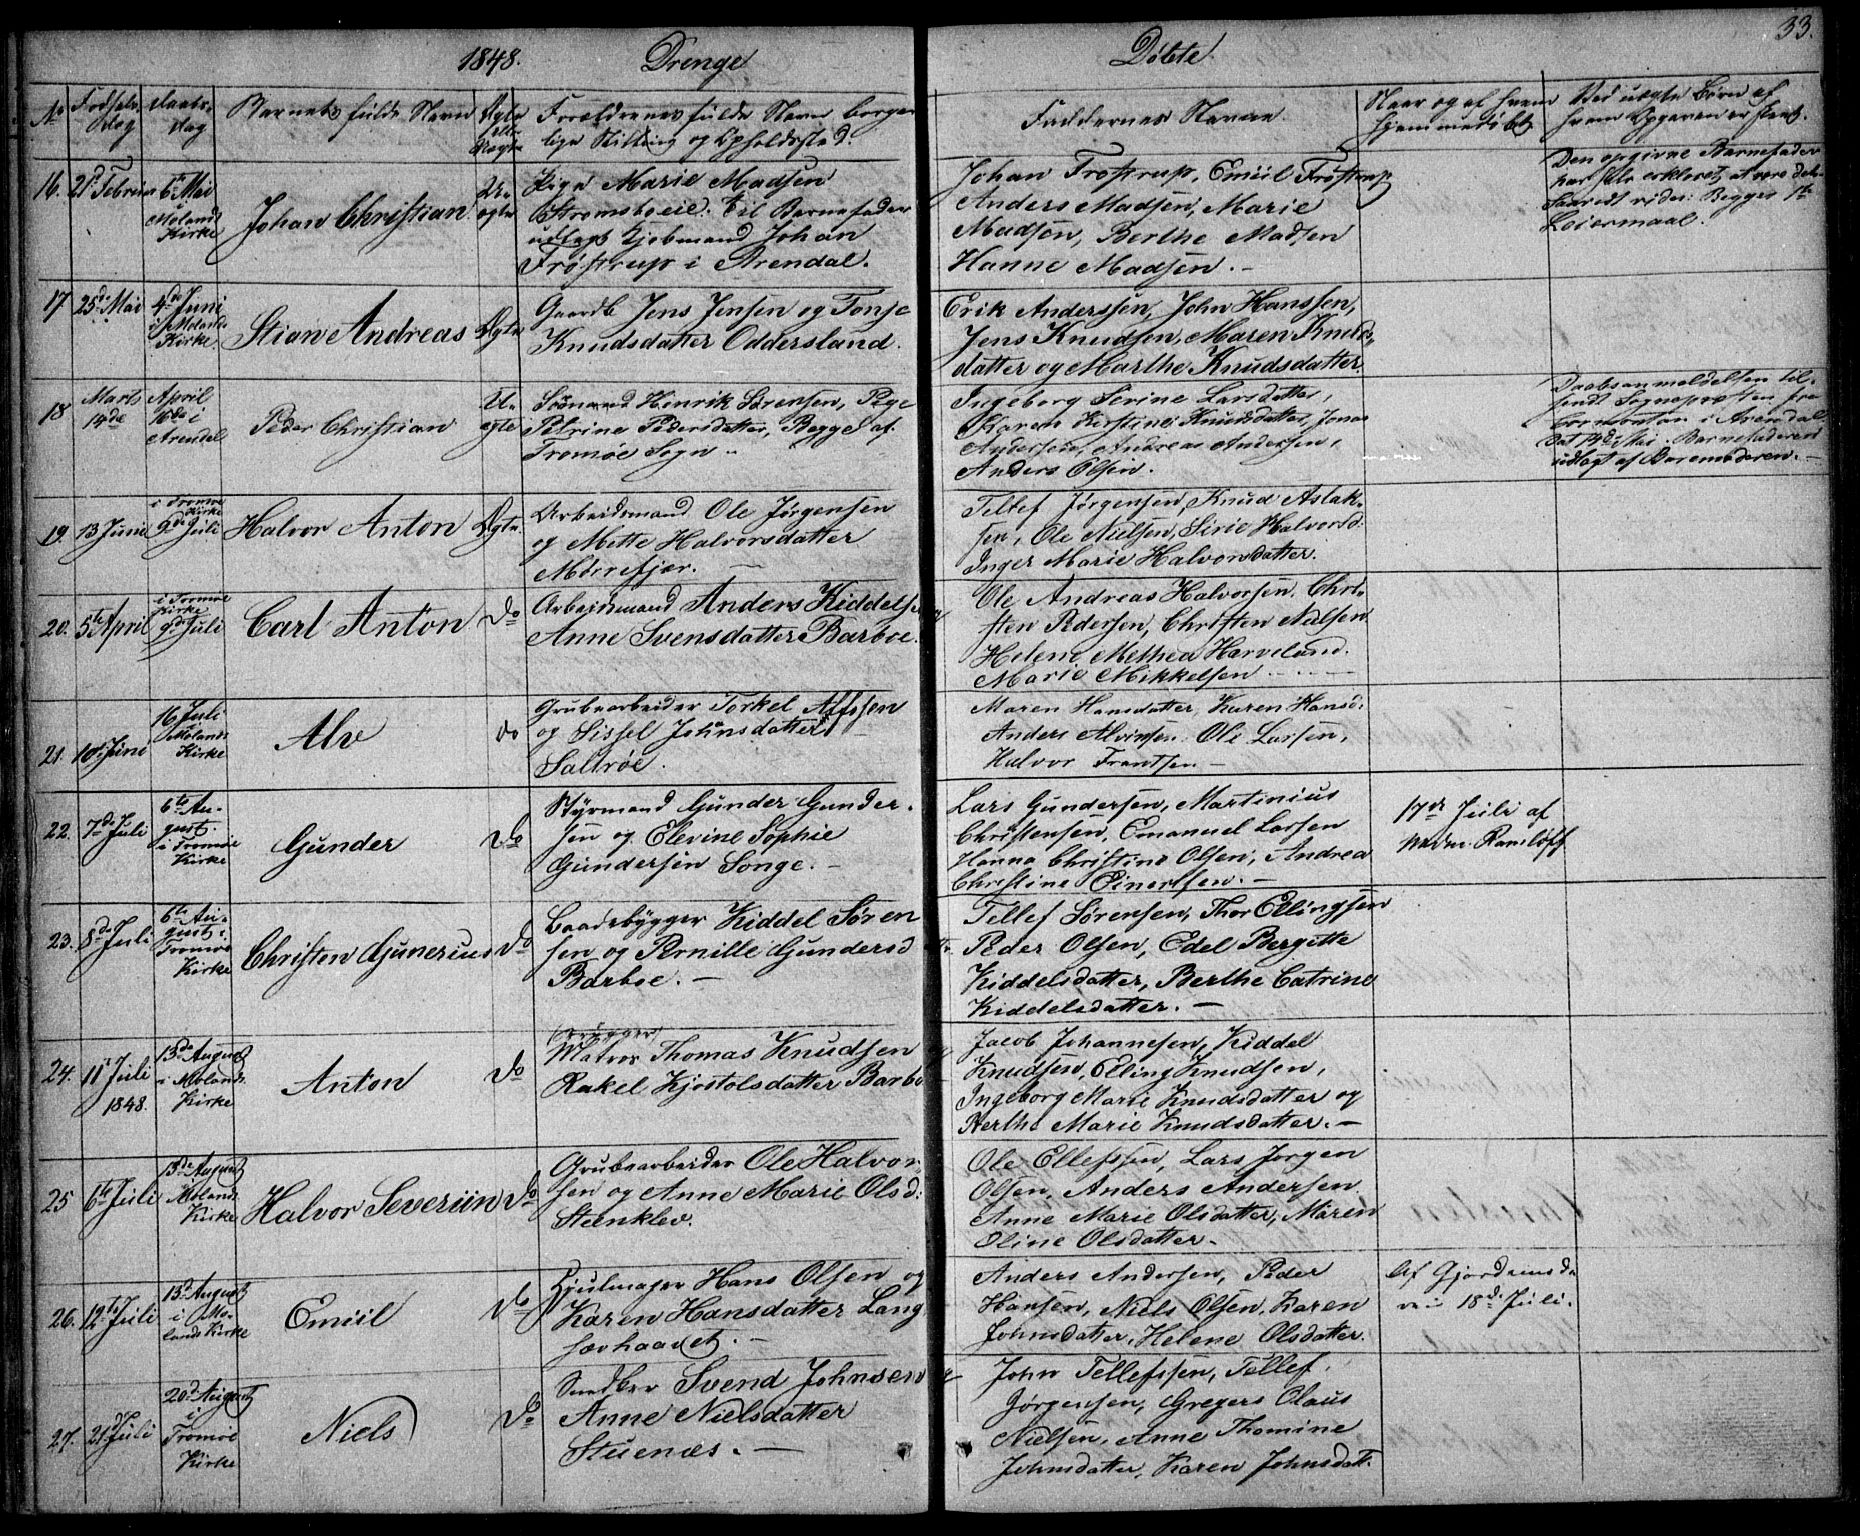 33.
1848. Drenge Döbte
No Fødsels Dag Daabs-dag Barnets fulde Navn Ægte eller Uægte Forældrenes fulde Navn borger-
lige Stilling og Opholdssted. Faddernes Navne Naar og af hvem
hjemmedöbt Ved uægte Börn af
hvem Opgaven er skeet.
16. 21de Februar 6te Mai
Molands
Kirke
Johan Christian
U-
ægte
Pige Marie Madsen
Strømsboeie: Til Barnefader
udlagt Kjøbmand Johan
Frøstrup i Arendal.
Johan Frøstrup, Emiil Frøstrup
Anders Madsen, Marie
Madsen, Berthe Madsen
Hanne Madsen.
Den opgivne Barnefader
har selv erkleret at være
Begges 1ste
Leiermaal.
17 25de Mai 4de Juni
i Molands
Kirke
Stian Andreas
Ægte
Gaardb Jens Jensen og Tonje
Knudsdatter Oddersland.
Erik Anderssen, John Hanssen,
Jens Knudsen, Maren Knuds-
datter og Marthe Knudsdatter
18 Marts
14de
April
16de i
Arendal
Peder Christian
U-
ægte
Sömand Henrik Sørensen, Pige
Petrine Pedersdatter, Begge af
Tromöe Sogn
Ingeborg Serine Larsdatter,
Karen Kirstine Knudsdatter, Jonas
Andersen, Andreas Andersen,
Anders Olsen.
Daabsanmeldelsen til-
sendt Sognepræsten fra
i Arendal
dat 14de Mai. Barnefaderen
udlagt af Barnemoderen.
19 13 Juni i Tromöe
Kirke
9de Juli
Halvor Anton
Ægte
Arbeidsmand Ole Jørgensen
og Mette Halvorsdatter
Mörrefjær.
Tellef Jørgensen, Knud Aslak-
sen, Ole Nielsen, Sirie Halvorsd:
Inger Marie Halvorsdatter.
20. 5te April i Tromöe
Kirke
9de Juli
Carl Anton
do
Arbeidsmand Anders Kiddelsen
Anne Svensdatter Barboe.
Ole Andreas Halvorsen, Chri-
sten Pedersen, Christen Nielsen
Helene Methea Harveland.
Marie Mikkelsen
21. 10de Juni 16 Juli
Molands
Kirke
Alv
do
Grubearbeider Torkel Alfssen
og Sissel Johnsdatter
Saltröe.
Maren Hansdatter, Karen Hansd:
Anders Alvinsen. Ole Larsen,
Halvor Frantsen
22. 7de Juli 6te Au-
gust.
i Tromöe
Kirke
Gunder
do
Styrmand Gunder Gunder-
sen og Elevine Sophie
Gundersen Songe.
Lars Gundersen, Martinius
Christensen, Emanuel Larsen
Hanna Christine Olsen, Andrea
Christine Einertsen.
17de Juli af
Ramløff
23. 8de Juli 6te Au-
gust i
Tromöe
Kirke
Christen Gunerius
do
Baadsbygger Kiddel Sören
sen og Pernille Gundersd
Barboe.
Tellef Sörensen, Thor Ellingsen
Peder Olsen, Edel Bergitte
Kiddelsdatter, Berthe Catrine
Kiddelsdatter.
24. 11te Juli
1848.
13de August
i Molands
Kirke
Anton
do
Matros Thomas Knudsen
Rakel Kjostolsdatter Barbo
Jacob Johannesen, Kiddel
Knudsen, Elling Knudsen,
Ingeborg Marie Knudsdatter og
Berthe Marie Knudsdatter.
25 6te Juli 13de August
i
Molands
Kirke
Halvor Severiin
do
Grubearbeider Ole Halvor-
sen og Anne Marie Olsd:
Steenklev.
Ole Ellefssen, Lars Jorgen
Olsen, Anders Andersen.
Anne Marie Olsdatter, Maren
Oline Olsdatter.
26. 12te Juli 13de August
i Mo-
lands Kirke
Emiil
do
Hjulmager Hans Olsen og
Karen Hansdatter Lang
sævhaavet.
Anders Andersen, Peder
Hansen, Niels Olsen, Karen
Johnsdatter, Helene Olsdatter.
Af
18de Juli.
27. 21de Juli 20de August
i
Tromöe
Kirke
Niels
do
Svend Johnsen
Anne Nielsdatter
Stuenæs.
John Tellefssen, Tellef
Jörgensen, Gregers Olaus
Nielsen, Anne Thomine
Johnsdatter, Karen Johnsdatt.